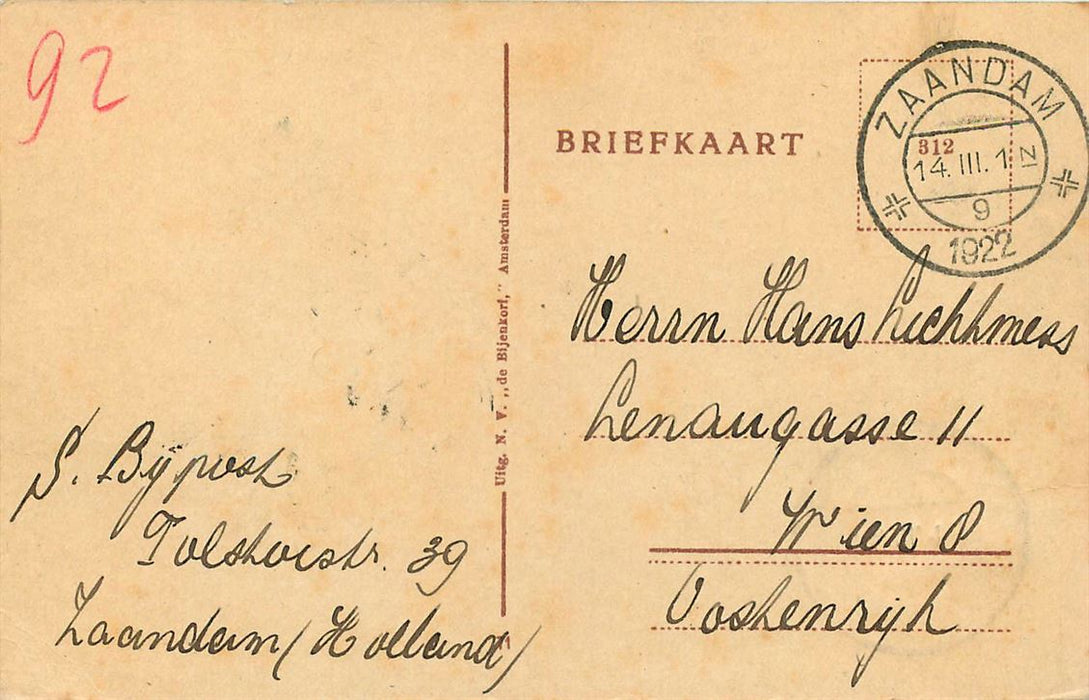 92
BRIEFKAART
ZAANDAM
312
14. III. 1 N
9
1922
Uitg. N. V. „de Bijenkorf," Amsterdam
Herrn Hans Lichtmess
Lenaugasse 11
Wien 8
Oostenryk
S. Bÿpost
Tolstoistr. 39
Zaandam (Holland)